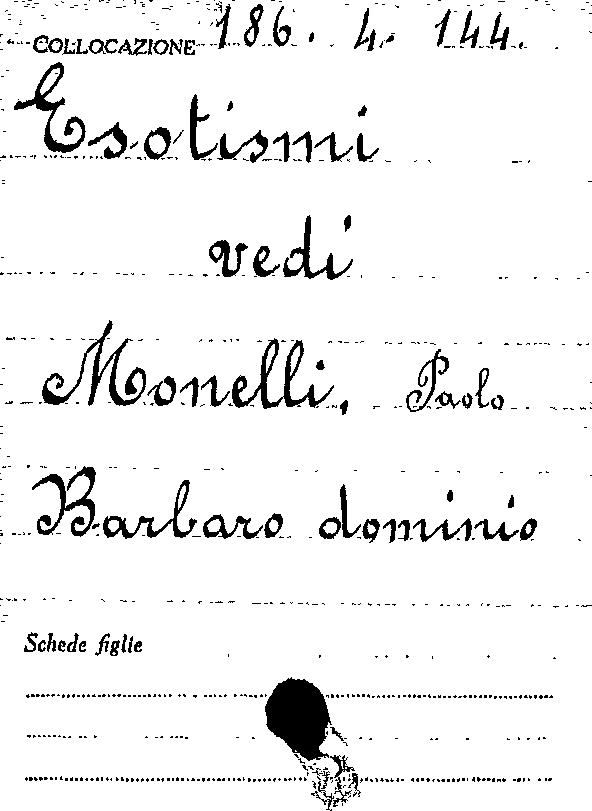 COLLOCAZIONE 186. 4. 144.
Esotismi
vedi
Monelli, Paolo
Barbaro dominio
Schede figlie